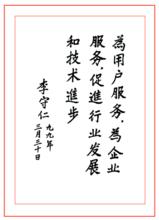 為用户服务,為企业
服务,促進行业发展
和技术進步
李守仁
九九年
三月三十日